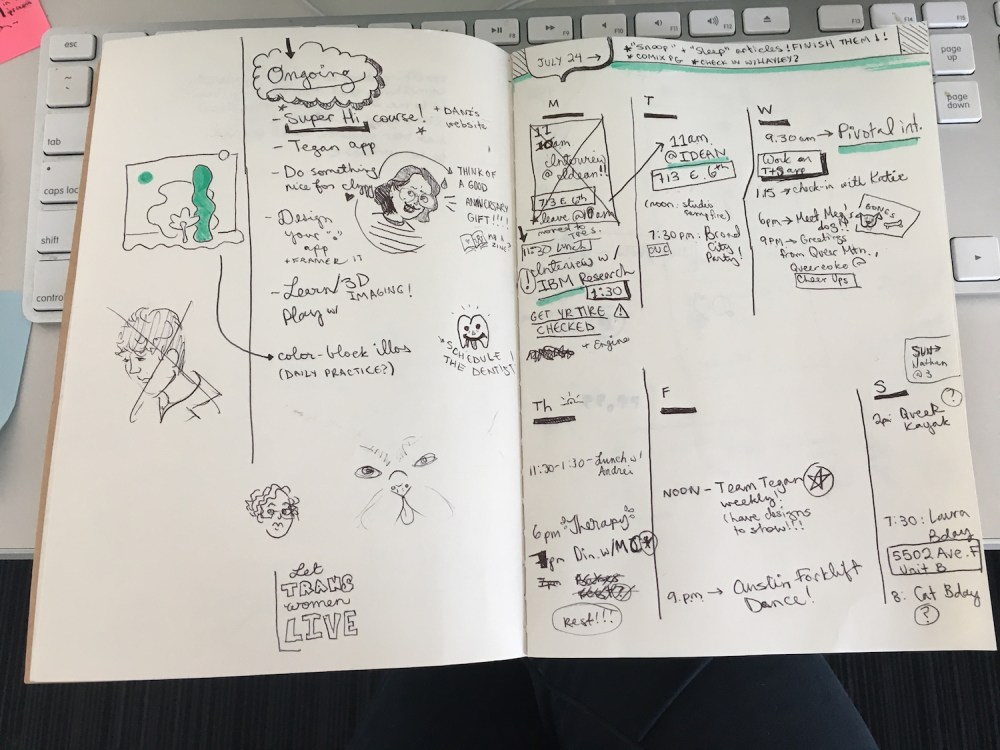 Ongoing
- Super Hi course!
+ DANI'S
website
- Tegan app
- Do something
nice for
THINK OF
A GOOD
ANNIVERSARY
GIFT!!!!
- Design
your " "
app
+ FRAMER IT
- Learn/3D
IMAGING!
Play w/
color-block illos
(DAILY PRACTICE?)
* SCHEDULE
THE DENTIST
Let
TRANS
women
LIVE
JULY 24 →
* "SNOOP" + "SLEEP" articles! FINISH THEM!!
* COMIX PG * CHECK IN W/HAYLEY?
M
11
am
Interview
@
713 E. 6th
* leave @ am
moved to
TUES.
11:30 Lunch
! Interview w/
IBM Research
1:30
GET YR TIRE
CHECKED
+ Engine
T
11am
@ IDEAN
713 E. 6th
(noon: studio
campfire)
7:30pm: Brand
City
Party!
W
9:30am → Pivotal int.
Work on
app
1:15 → check-in with Katie
6pm → Meet Meg's
dog!!
BONES
9PM → Greetings
from Queer Mtn.,
Queereoke @
Cheer Ups
Th
11:30-1:30 - Lunch w/
Andrei
6pm Therapy
pm Din. w/M
7pm
Rest!!!
F
NOON - Team Tegan
weekly!
(have designs
to show!!!)
9.p.m → Austin Forklift
Dance!
SUN →
Nathan
@ 3
S
?
2p: Queer
Kayak
7:30: Laura
Bday
5502 Ave. F
Unit B
8: Cat Bday
?
esc
~
`
tab
caps lock
shift
contro
F7
F8
F9
F10
F11
F12
F13
F14
F15
page
up
page
down